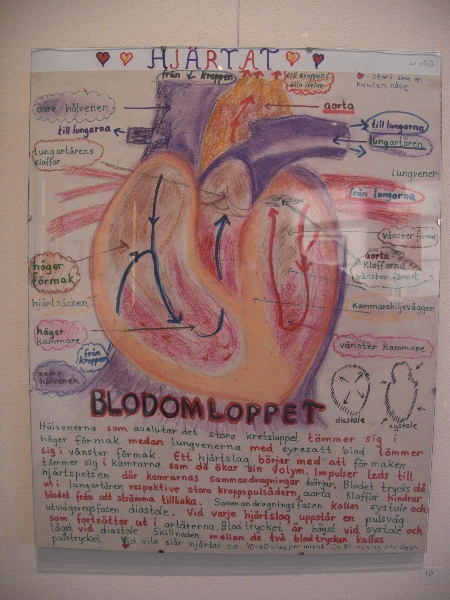 HJÄRTAT
från kroppen
till kroppens
alla delar
♥ - stort som en
knuten näve
övre hålvenen
aorta
till lungorna
till lungorna
lungartärens
klaffar
lungartären
lungvener
från lungorna
vänster förmak
höger
förmak
aorta
klaffarna
vänster förmak
hjärtsäcken
kammarskiljeväggen
höger
kammare
vänster kammare
från
kroppen
nedre
hålvenen
diastole
systole
BLODOMLOPPET
Hålvenerna som avslutar det stora kretsloppet tömmer sig i
höger förmak medan lungvenerna med syresatt blod tömmer
sig i vänster förmak. Ett hjärtslag börjar med att förmaken
tömmer sig i kamrarna som då ökar sin volym. Impulser leds till
hjärtspetsen där kamrarnas sammandragningar börjar. Blodet trycks då
ut i lungartären respektive stora kroppspulsådern, aorta. Klaffar hindrar
blodet från att strömma tillbaka. Sammandragningsfasen kallas systole och
utvidgningsfasen diastole. Vid varje hjärtslag uppstår en pulsvåg
som fortsätter ut i artärerna. Blodtrycket är högst vid systole och
lägst vid diastole. Skillnaden mellan de två blodtrycken kallas
pulstryck. Vid vila slår hjärtat ca.
10